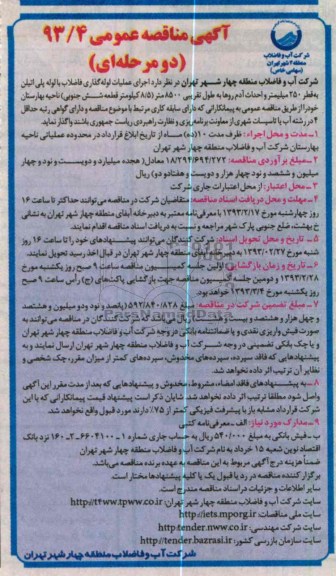 شرکت آب و فاضلاب
منطقه ۴ شهر تهران
(سهامی خاص)
آگهی مناقصه عمومی ۹۳/۴
(دو مرحله‌ای)
شرکت آب و فاضلاب منطقه چهار شهر تهران در نظر دارد اجرای عملیات لوله‌گذاری فاضلاب با لوله پلی اتیلن
به قطر ۲۵۰ میلیمتر و احداث آدم روها به طول تقریبی ۸۵۰۰ متر (۸/۵ کیلومتر قطعه شش جنوبی) ناحیه بهارستان
خود را از طریق مناقصه عمومی به پیمانکارانی که دارای سابقه کاری مرتبط با موضوع مناقصه و دارای گواهی رتبه حداقل
۴ در رشته آب یا تاسیسات شهری از معاونت برنامه‌ریزی و نظارت راهبردی ریاست جمهوری باشند واگذار نماید.
۱-مدت و محل اجراء: ظرف مدت ۱۰(ده) ماه از تاریخ ابلاغ قرارداد در محدوده عملیاتی ناحیه
بهارستان شرکت آب و فاضلاب منطقه چهار شهر تهران
۲-مبلغ برآوردی مناقصه: ۱۸/۲۹۴/۶۹۴/۲۷۲ معادل( هجده میلیارد و دویست و نود و چهار
میلیون و ششصد و نود چهار هزار و دویست و هفتاد و دو) ریال
۳-محل اعتبار: از محل اعتبارات جاری شرکت
۴-مهلت و محل دریافت اسناد مناقصه: متقاضیان شرکت در مناقصه می‌توانند حداکثر تا ساعت ۱۶
روز چهارشنبه مورخ ۱۳۹۳/۲/۱۷ با معرفی‌نامه معتبر به دبیرخانه آبفای منطقه چهار شهر تهران به نشانی
خ بهشت، ضلع جنوبی پارک شهر مراجعه و نسبت به دریافت اسناد مناقصه اقدام نمایند.
۵- تاریخ و محل تحویل اسناد: شرکت کنندگان می‌توانند پیشنهادهای خود را تا ساعت ۱۶ روز
شنبه مورخ ۱۳۹۳/۰۲/۲۷ به دبیرخانه آبفای منطقه چهار شهر تهران در قبال اخذ رسید تحویل نمایند.
۶- تاریخ و زمان بازگشایی: اولین جلسه کمیسیون مناقصه ساعت ۹ صبح روز یکشنبه مورخ
۱۳۹۳/۲/۲۸ و دومین جلسه کمیسیون مناقصه جهت بازگشایی پاکت‌های (ج) رأس ساعت ۹ صبح
روز یکشنبه مورخ ۱۳۹۳/۳/۴ خواهد بود.
۷- مبلغ تضمین شرکت در مناقصه: مبلغ ۵۹۲/۸۴۰/۸۲۸ (پانصد و نود و دو میلیون و هشتصد
و چهل هزار و هشتصد و بیست و هشت) ریال می‌باشد که شرکت کنندگان در مناقصه می‌توانند به
صورت فیش واریزی نقدی و یا ضمانتنامه بانکی در وجه شرکت آب و فاضلاب منطقه چهار شهر تهران
و یا چک بانکی تضمینی در وجه شرکت آب و فاضلاب منطقه چهار شهر تهران ارسال نمایند و به
پیشنهادهایی که فاقد سپرده، سپرده‌های مخدوش، سپرده‌های کمتر از میزان مقرر، چک شخصی و
نظایر آن ترتیب اثر داده نخواهد شد.
۸- به پیشنهادهای فاقد امضاء، مشروط، مخدوش و پیشنهادهایی که بعد از مدت مقرر این آگهی
واصل شود مطلقا ترتیب اثر داده نخواهد شد. شایان ذکر است پیشنهاد قیمت پیمانکارانی که با این
شرکت قرارداد مشابه باز با پیشرفت فیزیکی کمتر از ۷۵٪ دارند مورد قبول واقع نخواهد شد.
۹-مدارک مورد نیاز: الف-معرفی‌نامه کتبی
ب- فیش بانکی به مبلغ ۵۴۰/۰۰۰ ریال به حساب جاری شماره ۱-۶۶۰۴۱۰۰-۲-۱۶۰ نزد بانک
اقتصاد نوین شعبه ۱۵ خرداد به نام شرکت آب و فاضلاب منطقه چهار شهر تهران
ضمناً هزینه درج آگهی مربوط به این مناقصه به عهده برنده مناقصه می‌باشد.
برگزار کننده مناقصه در رد یا قبول یک یا کلیه پیشنهادها مختار است.
سایر اطلاعات و جزئیات در اسناد مناقصه مندرج است.
سایت شرکت آب و فاضلاب منطقه چهار شهر تهران: http://t4ww.tpww.co.ir
سایت ملی مناقصات: http://iets.mporg.ir
سایت شرکت مهندسی: http://tender.nww.co.ir
سایت سازمان بازرسی کشور: http://tender.bazrasi.ir
شرکت آب و فاضلاب منطقه چهار شهر تهران